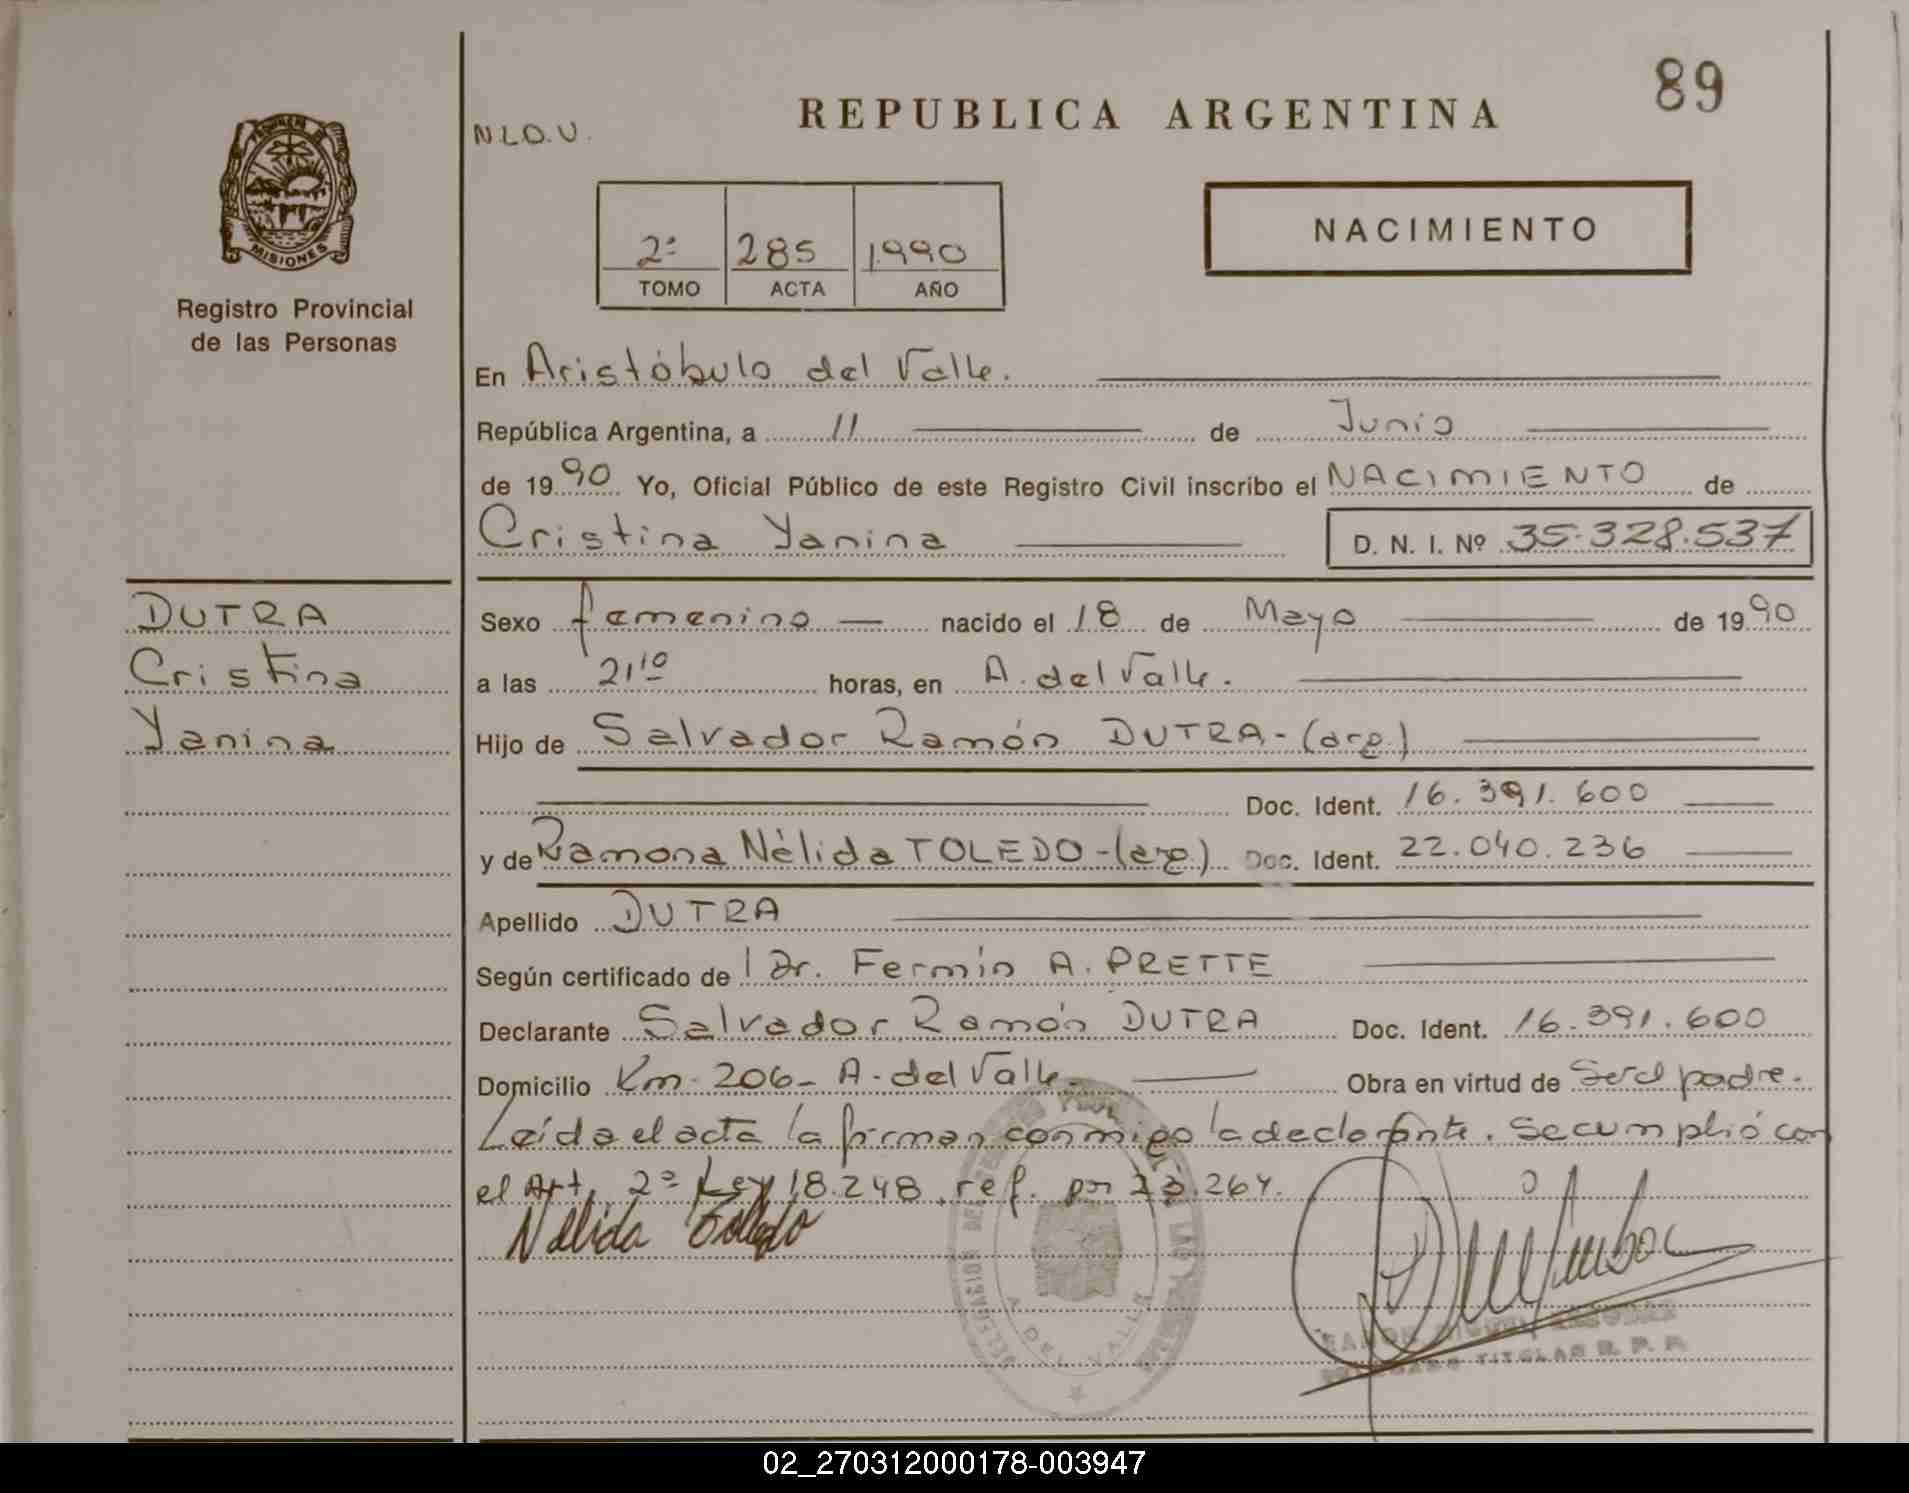 89
REPUBLICA ARGENTINA
N.L.O.V.
PROVINCIA DE
MISIONES
Registro Provincial
de las Personas
2º 285 1990
TOMO ACTA AÑO
NACIMIENTO
En Aristóbulo del Valle.
República Argentina, a 11 de Junio
de 1990 Yo, Oficial Público de este Registro Civil inscribo el NACIMIENTO de
Cristina Yanina D. N. I. Nº 35.328.537
DUTRA
Cristina
Yanina
Sexo femenino — nacido el 18 de Mayo de 1990
a las 21¹⁰ horas, en A. del Valle.
Hijo de Salvador Ramón DUTRA - (arg.)
Doc. Ident. 16.391.600
y de Ramona Nélida TOLEDO - (arg.) Doc. Ident. 22.040.236
Apellido DUTRA
Según certificado de l Dr. Fermín A. PRETTE
Declarante Salvador Ramón DUTRA Doc. Ident. 16.391.600
Domicilio Km. 206 - A. del Valle. Obra en virtud de Ser el padre.
Leída el acta la firman conmigo la declarante. Se cumplió con
el Art. 2º Ley 18.248 ref. por 23.264.
Nélida Toledo
A. DEL VALLE
TITULAR R. P. P.
02_270312000178-003947